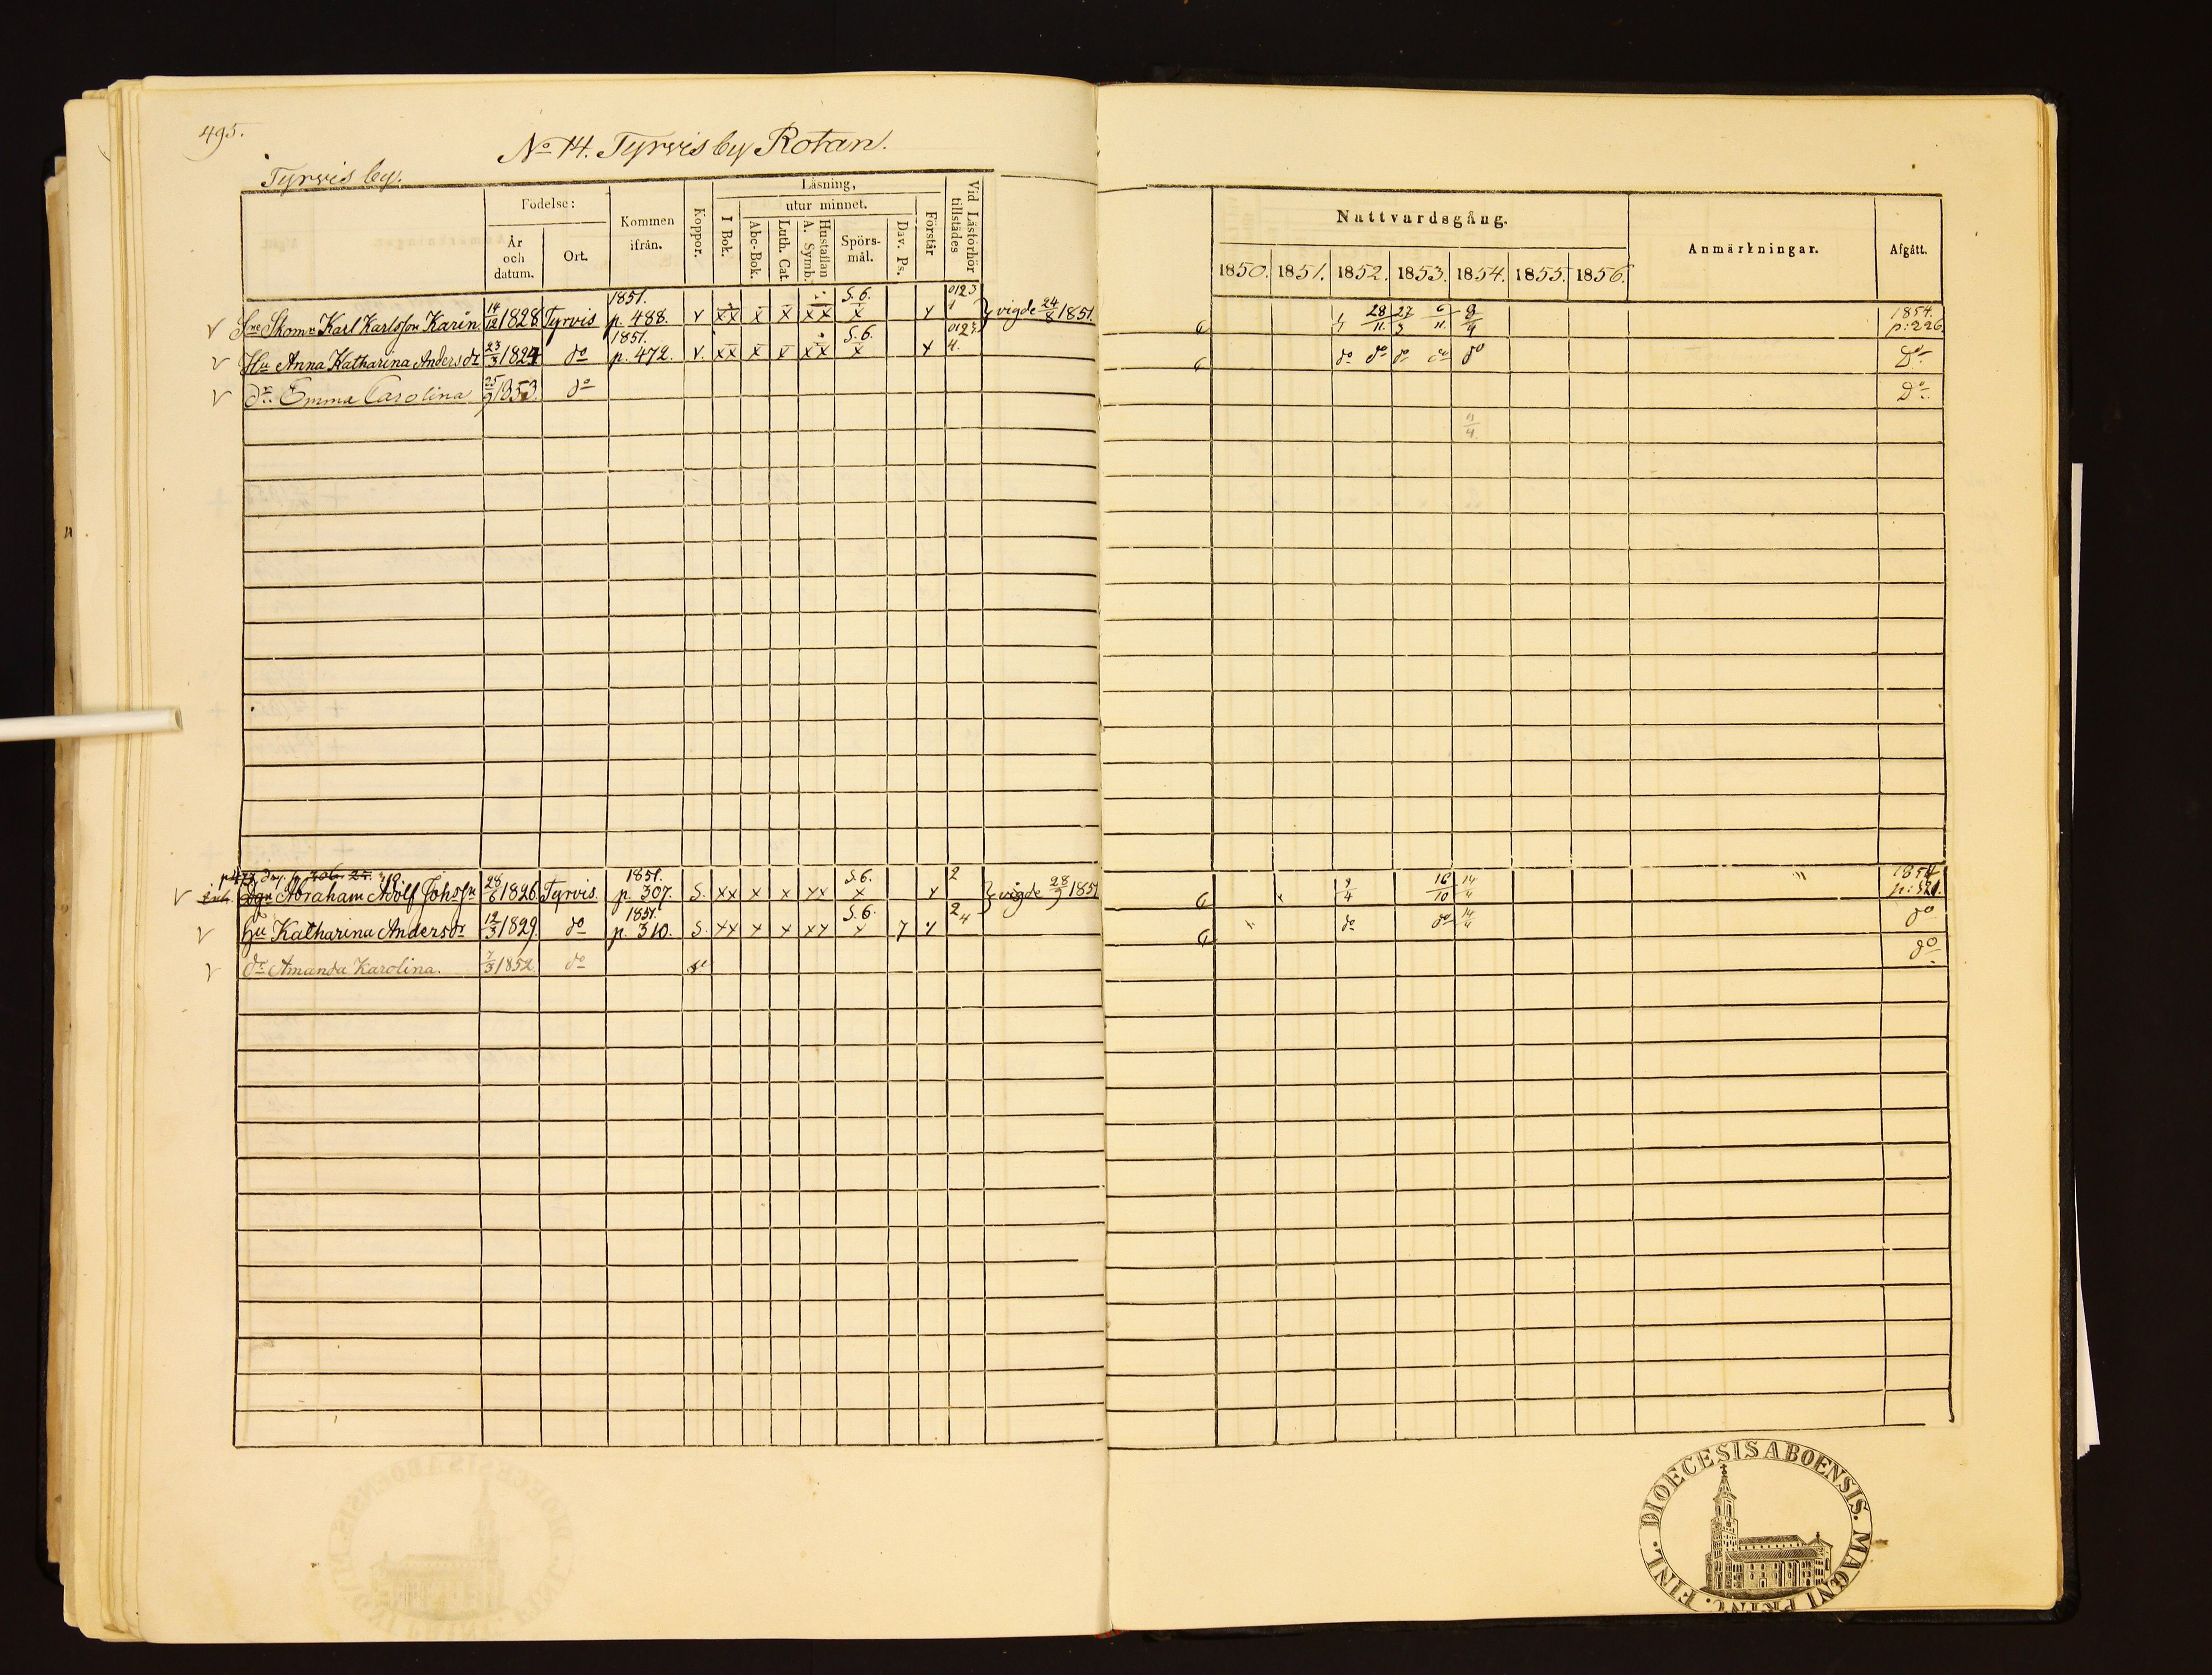 495.
No 14. Tyrvis by Rotan.
Tyrvis by.
Födelse:
År och datum.
Ort.
Kommen ifrån.
Koppor.
Läsning,
I Bok.
utur minnet.
Abc-Bok.
Luth. Cat
Hustaflan A. Symb.
Spörs-mål.
Dav. Ps.
Förstår
Vid Läsförhör tillstädes
Nattvardsgång.
1850. 1851. 1852. 1853. 1854. 1855. 1856.
Anmärkningar.
Afgått.
Skomr Karl Karlsson Karin. 14/12 1828 Tyrvis 1851. p. 488. v xx x x xx S. 6. x 0123 vigde 24/8 1851. 28/11 27/3 6/11 1854. p: 226.
Hu Anna Katharina Andersdr 23/3 1824 do 1851. p. 472. v. xx x x xx S. 6. x 0123 4. do do do do do Do
dr Emma Carolina 25/9 1853. do Do
Abraham Adolf Johsn 28/6 1826. Tyrvis. 1851. p. 307. S. xx x x xx S. 6. x 2 vigde 28/9 1851 9/4 16/10 14/4 1854
hu Katharina Andersdr 12/3 1829. do 1851. p. 310. S. xx x x xx S. 6. x 2 4 do do 14/4 do
dr Amanda Karolina. 7/3 1852. do do
DIOECESIS ABOENSIS. MAGNI PRINC. FINL.